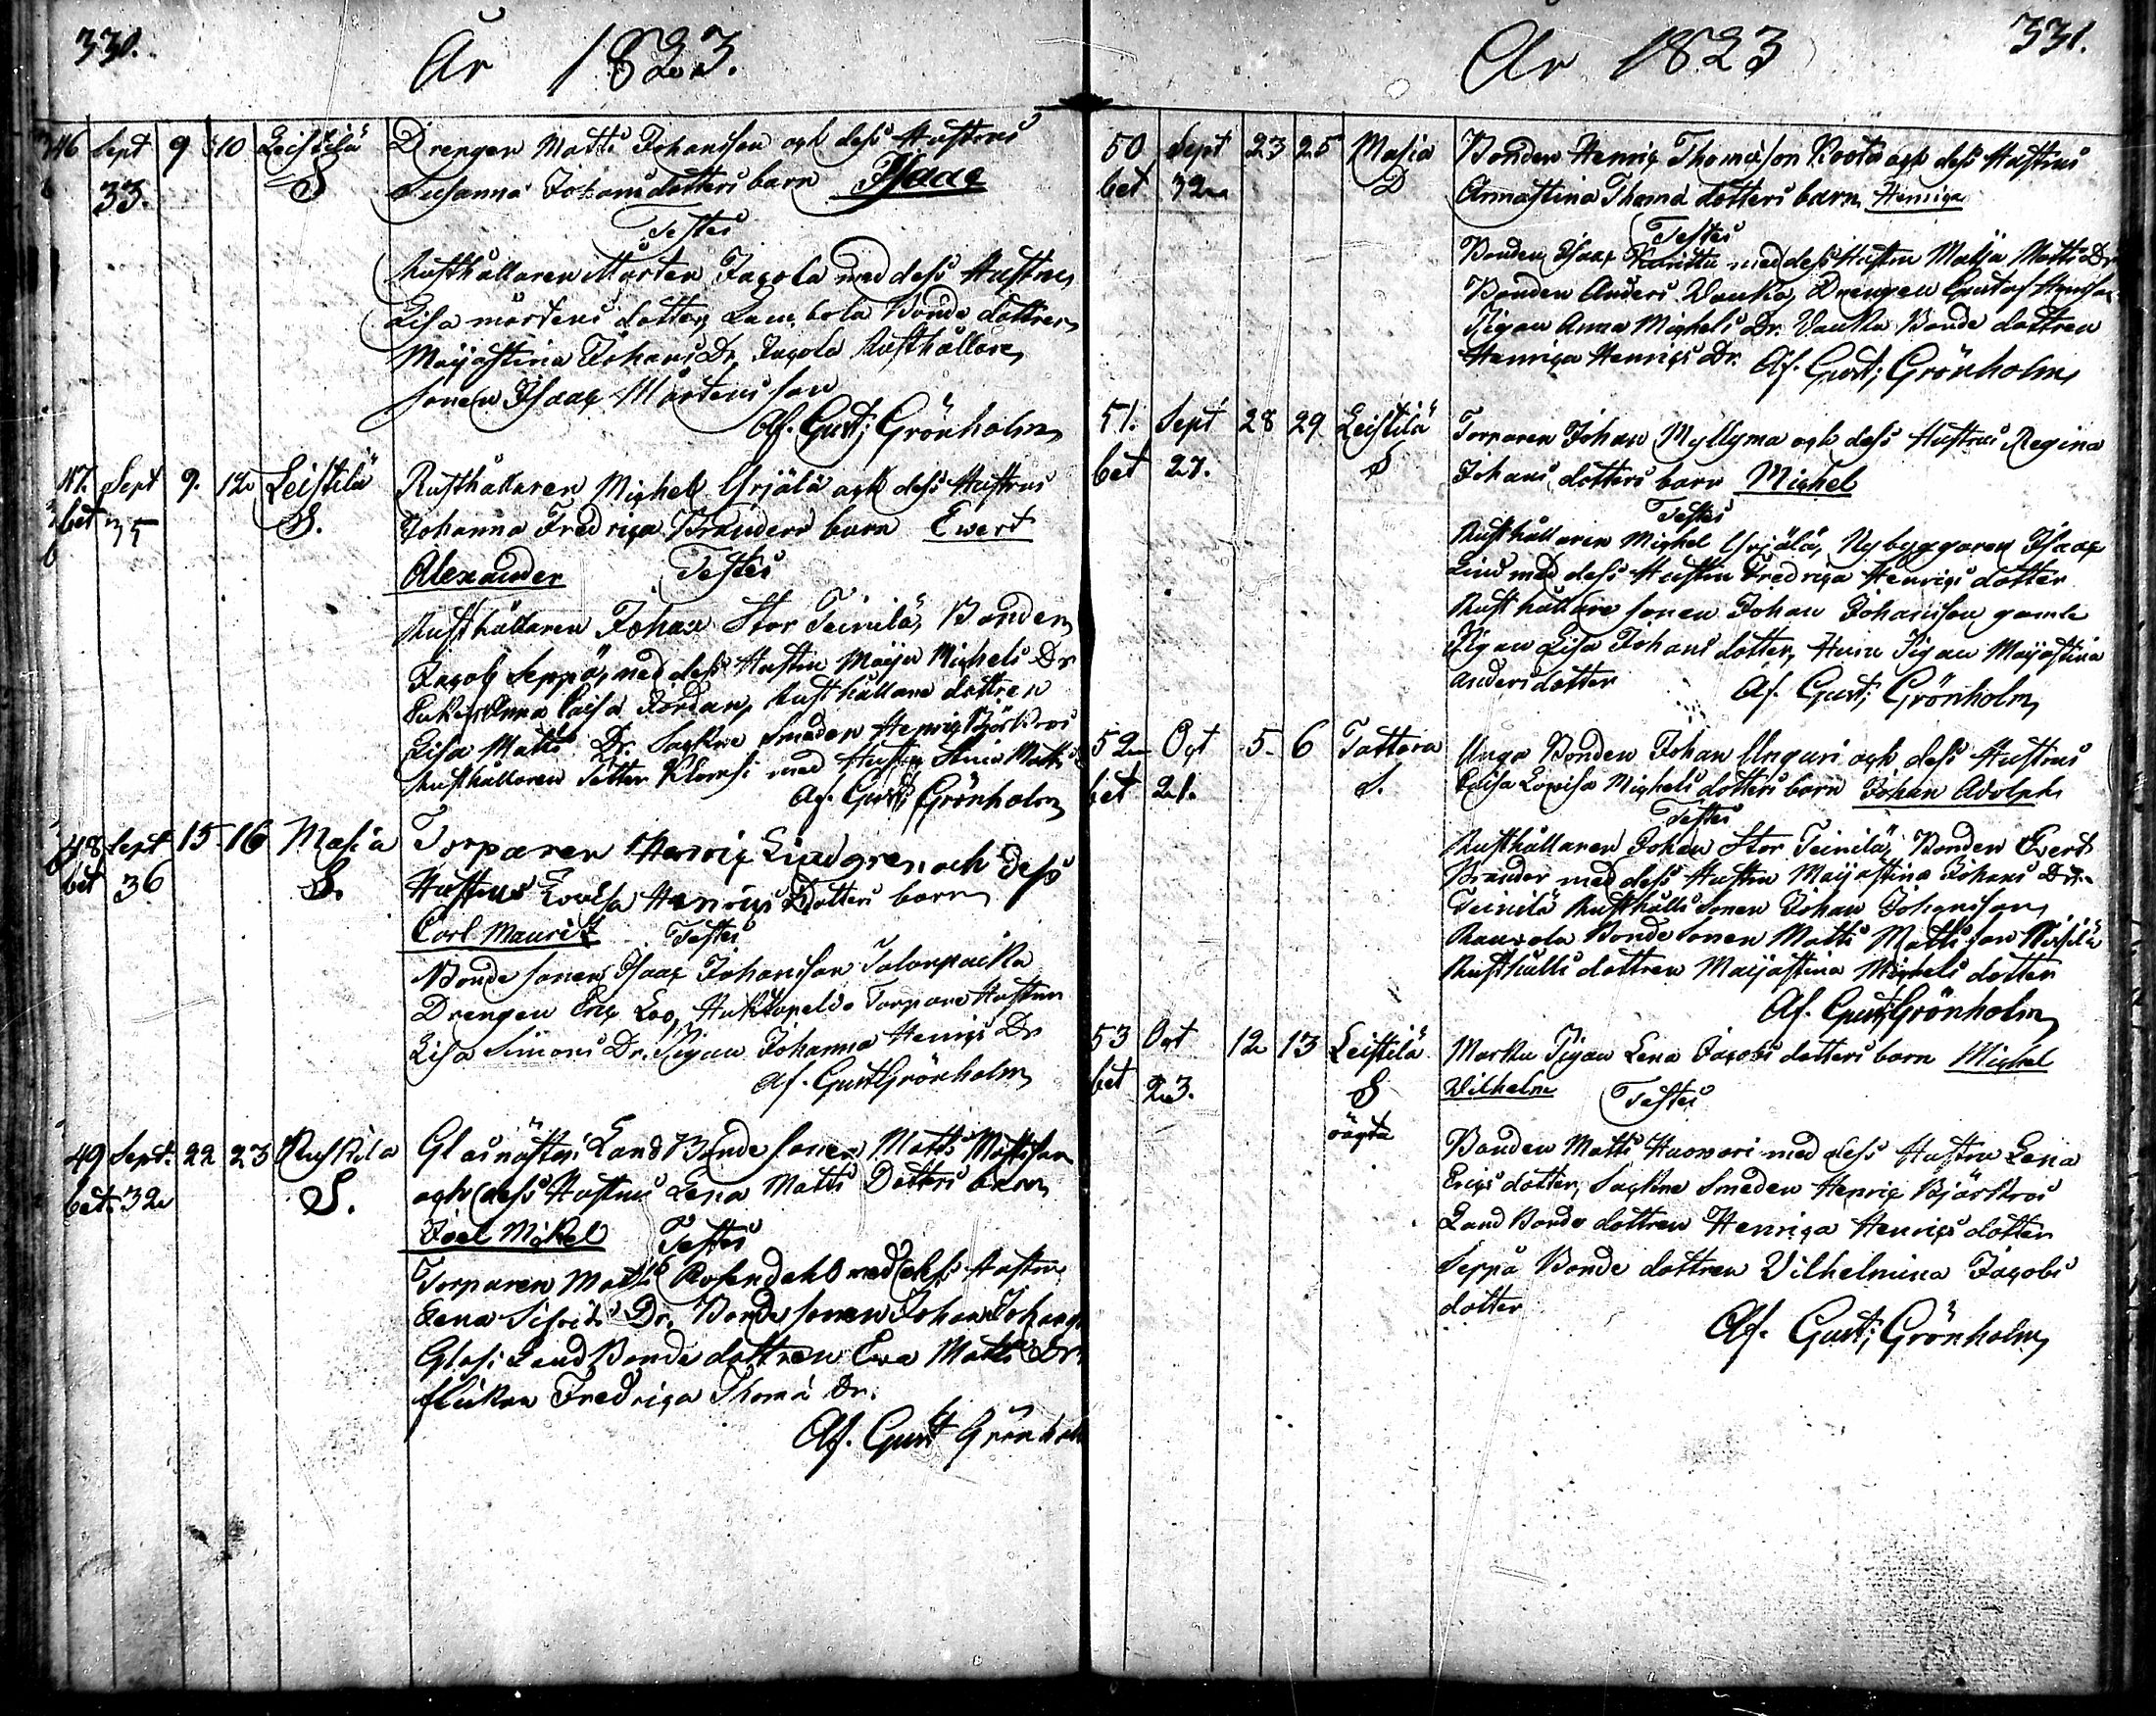 330.
År 1823.
46 Sept 9 10 Leistilä Drengen Matts Johansson och dess Hustrus
33. S Susanna Johansdotters barn Isaac
Testes
Rusthållaren Mårten Jacola med dess Hustru,
Lisa mårtens dotter, Lambola Bonde dottren
Maijastina Johans Dr, Jacola Rusthållare,
sonen Isaac Mårtensson
Af. Gust; Grönholm
47. Sept 9. 12 Leistilä Rusthållaren Michel Yrjälä och dess Hustrus
bet 35 S. Johanna Fredrica Branders barn Ewert
Alexander Testes
Rusthållaren Johan Stor Teinilä, Bonden
Jacob Seppä, med dess Hustru Maija Michels Dr
Anna Caisa Jordan, Rusthållare dottren
Lisa Matts Dr. Sockne Smeden Henric Björkroos
Rusthållaren Petter Klemsi med Hustru Stina Matts
Af. Gust; Grönholm
48 Sept 15 16 Masia Torparen Henric Lindgren och Dess
bet 36 S. Hustrus Lovisa Henrics Dotters barn
Carl Mauritz Testes
Bonde sonen Isaac Johansson Talonpoika
Drengen Eric Loo, Torpare Hustrun
Lisa Simons Dr. Pigan Johanna Henrics Dr
Af. Gust Grönholm
49 Sept. 22 23 Ruskila Glasmästari Land Bonde sonen Matts Mattsson
bet. 32 S. och dess Hustrus Lena Matts Dotters barn
Joel Mickel Testes
Torparen Matts Rosendahl med dess Hustru
Lena Sifrids Dr. Bonde sonen Johan Johans
Glasi Land Bonde dottren Eva Matts Dr
flickan Fredrica Thomæ Dr.
Af. Gust Grönholm
331.
År 1823
50 Sept 23 25 Masia Bonden Henric Thomasson Rosta och dess Hustrus
bet 32 D Annastina Thomæ dotters barn Henrica
Testes
Bonden Isaac med dess Hustru Maija Matts Dr
Bonden Anders Vauka, Drengen Gustaf
Pigan Anna Michels Dr. Vauka Bonde dottren
Henrica Henrics Dr. Af. Gust; Grönholm
51. Sept 28 29 Leistilä Torparen Johan Myllyma och dess Hustrus Regina
bet 27. S Johans dotters barn Michel
Testes
Rusthållaren Michel Yrjälä, Nybyggaren Isaac
Lind med dess Hustru Fredrica Henrics dotter
Rusthållare sonen Johan Johansson gamle
Pigan Lisa Johans dotter, Pigan Maijastina
Anders dotter Af. Gust; Grönholm
52 Oct 5 6 Tattara Unga Bonden Johan Unguri och dess Hustrus
bet 21. S. Caisa Lovisa Michels dotters barn Johan Adolph
Testes
Rusthållaren Johan Stor Teinilä, Bonden Evert
Brander med dess Hustru Maijastina Johans Dr.
Teinilä Rusthålls sonen Johan Johansson,
Bonde sonen Matts Mattsson
Rusthålls dottren Maijastina Michels dotter
Af. Gust; Grönholm
53 Oct 12 13 Leistilä Pigan Lena Jacobs dotters barn Michel
bet 23. S Wilhelm Testes
oägta
Bonden Matts Haavari med dess Hustru Lena
Erics dotter, Sockne Smeden Henric Björkroos
Land Bonde dottren Henrica Henrics dotter
Seppä Bonde dottren Vilhelmina Jacobs
dotter
Af. Gust; Grönholm